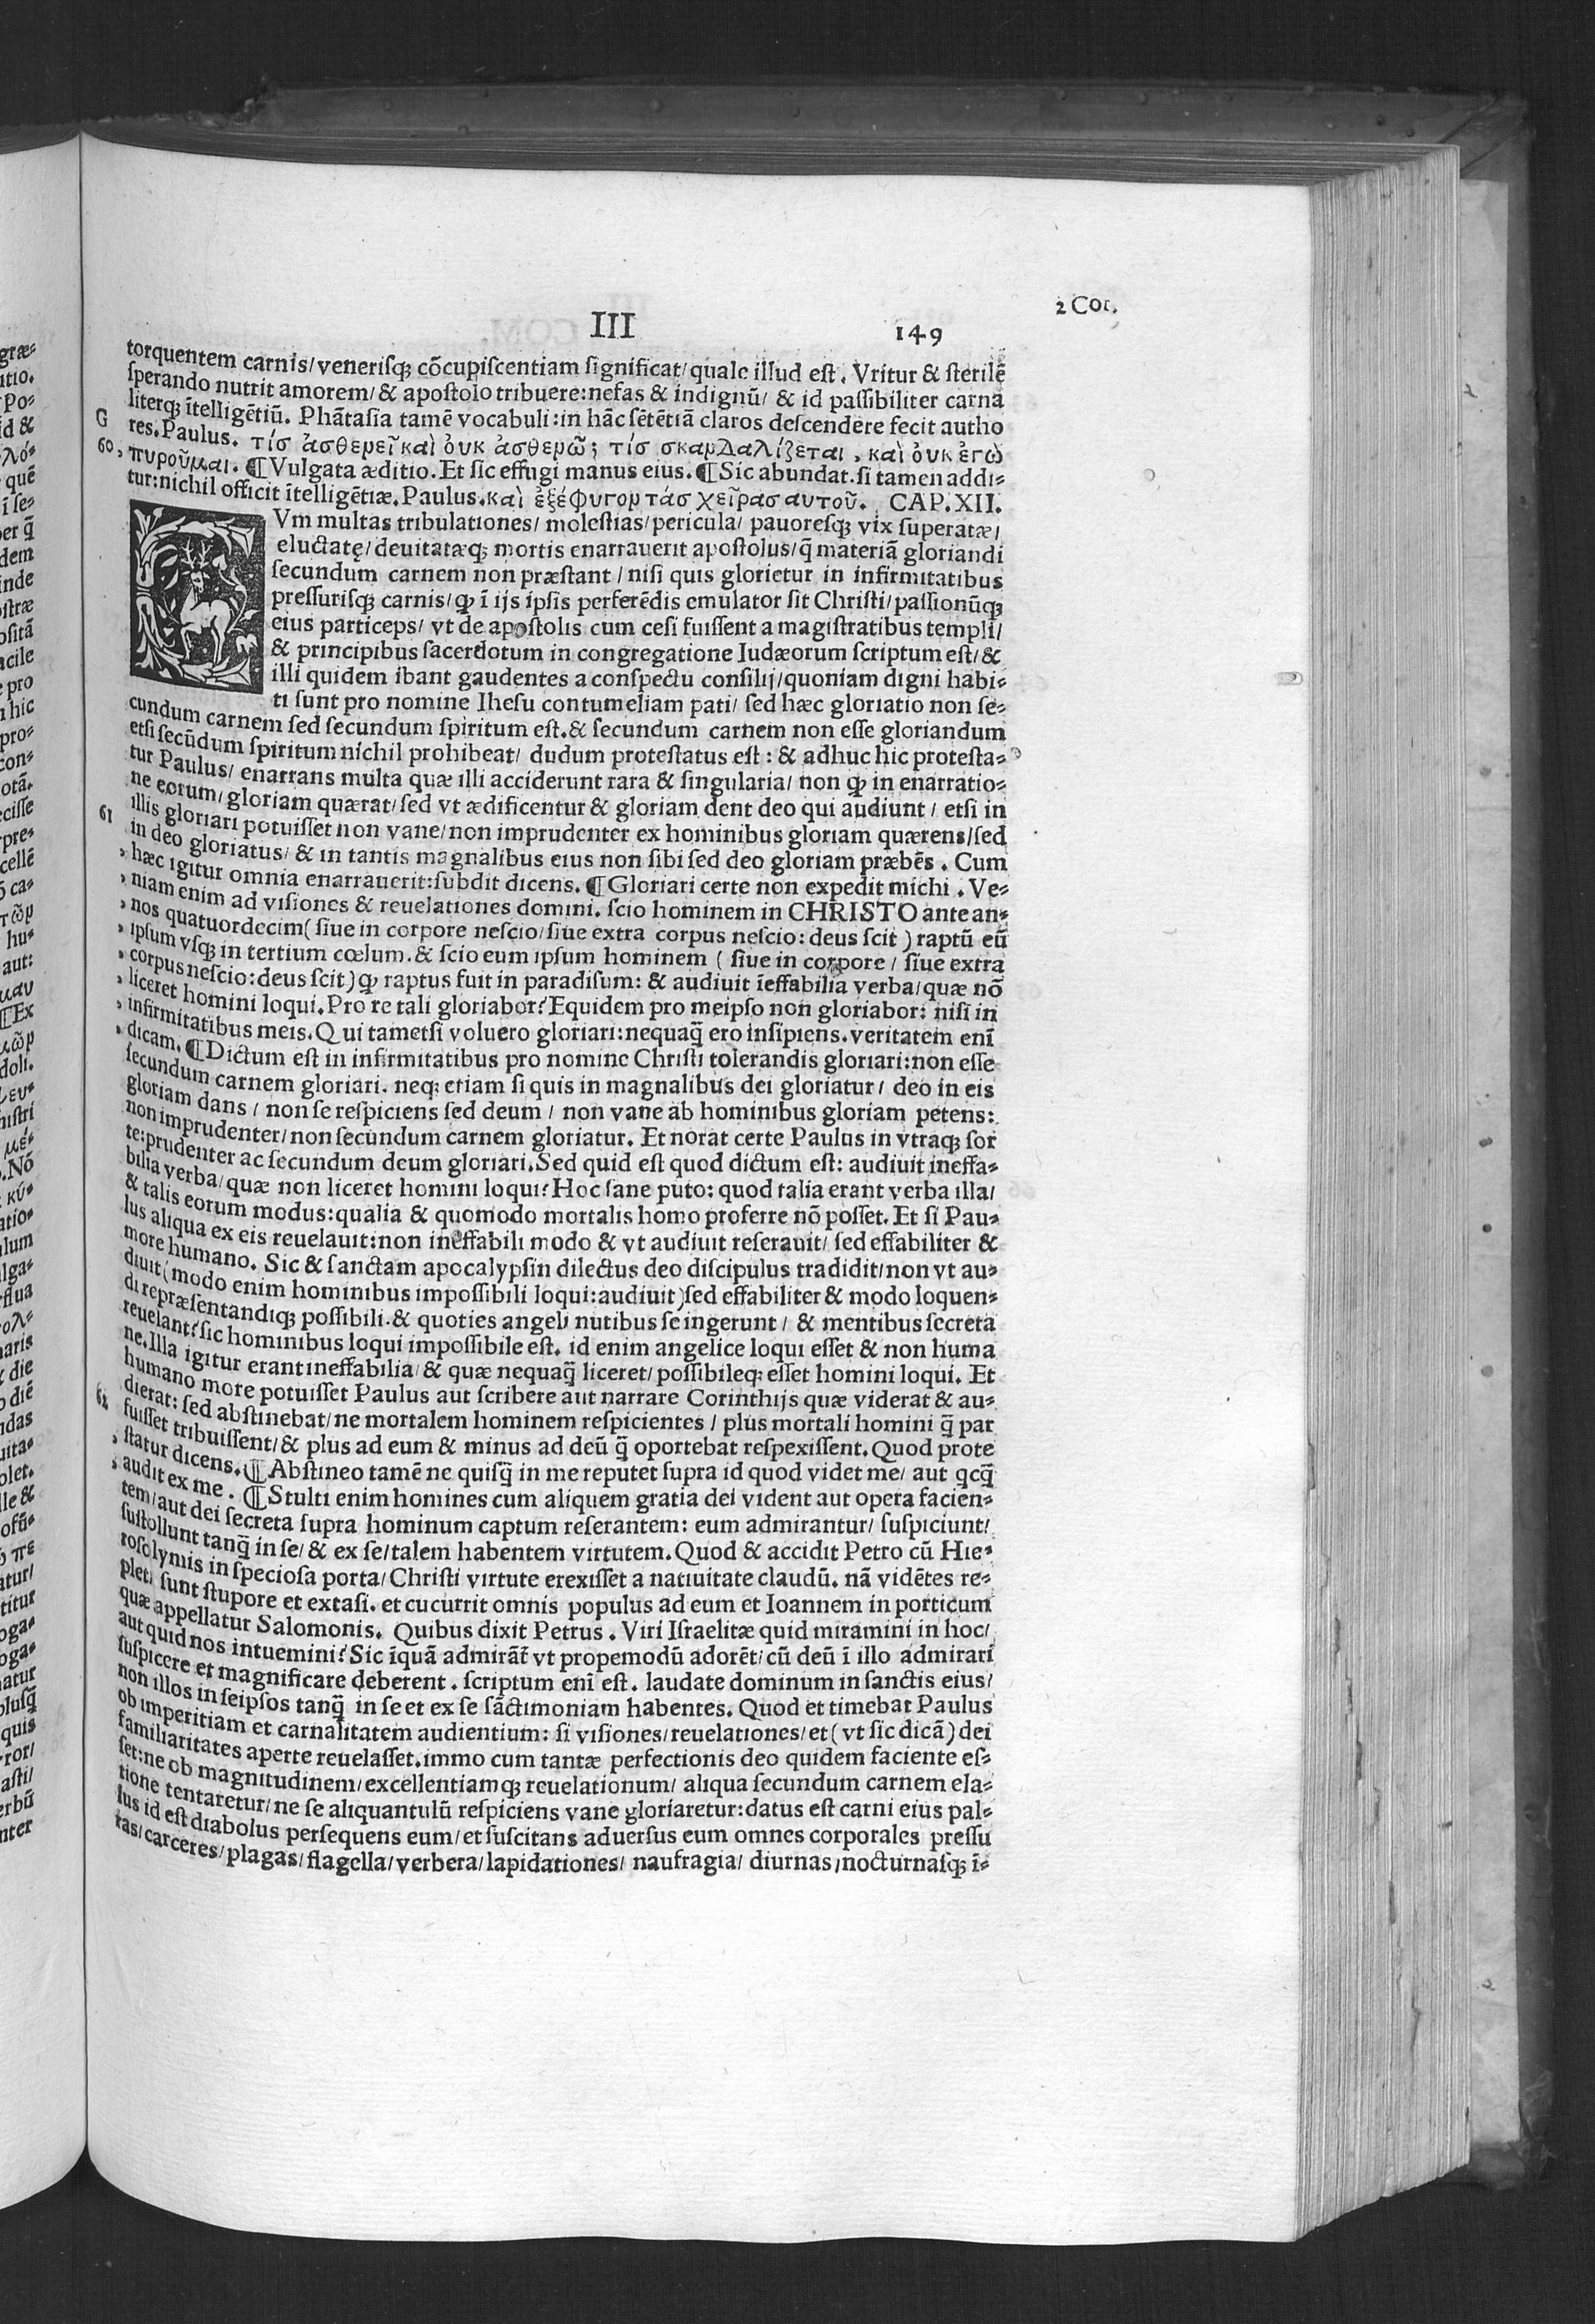 2 Cor.
III 149
torquentem carnis/venerisq; cõcupiscentiam significat/quale illud est. Vritur & sterilẽ
sperando nutrit amorem/& apostolo tribuere:nefas & indignũ/ & id passibiliter carna
literq; ĩtelligẽtiũ. Phãtasia tamẽ vocabuli:in hãc sẽtẽtiã claros descendere fecit autho
G res.Paulus. τίσ ἀσθενεῖ καὶ ὀυκ ἀσθενῶ; τίσ σκανδαλίζεται, καὶ ὀυκ ἐγὼ
60, πυροῦμαι. ¶Vulgata æditio. Et sic effugi manus eius.¶Sic abundat.si tamen addi-
tur:nichil officit ĩtelligẽtiæ.Paulus.καὶ ἐξέφυγον τάσ χεῖρασ αυτοῦ. CAP.XII.
CVm multas tribulationes/ molestias/pericula/ pauoresq; vix superatæ/
eluctatę/deuitatæq; mortis enarrauerit apostolus/q̃ materiã gloriandi
secundum carnem non præstant/nisi quis glorietur in infirmitatibus
pressurisq; carnis/ꝙ ĩ ijs ipsis perferẽdis emulator sit Christi/passionũq;
eius particeps/vt de apostolis cum cesi fuissent a magistratibus templi/
& principibus sacerdotum in congregatione Iudæorum scriptum est/&
illi quidem ibant gaudentes a conspectu consilij/quoniam digni habi-
ti sunt pro nomine Ihesu contumeliam pati/ sed hæc gloriatio non se-
cundum carnem sed secundum spiritum est.& secundum carnem non esse gloriandum
etsi secũdum spiritum nichil prohibeat/ dudum protestatus est: & adhuc hic protesta-
tur Paulus/ enarrans multa quæ illi acciderunt rara & singularia/ non ꝙ in enarratio-
ne eorum/gloriam quærat/sed vt ædificentur & gloriam dent deo qui audiunt/ etsi in
illis gloriari potuisset non vane/non imprudenter ex hominibus gloriam quærens/sed
61 in deo gloriatus/ & in tantis magnalibus eius non sibi sed deo gloriam præbẽs. Cum
, hæc igitur omnia enarrauerit:subdit dicens.¶Gloriari certe non expedit michi. Ve-
, niam enim ad visiones & reuelationes domini. scio hominem in CHRISTO ante an-
, nos quatuordecim(siue in corpore nescio/siue extra corpus nescio:deus scit)raptũ eũ
, ipsum vsq; in tertium cœlum.& scio eum ipsum hominem (siue in corpore/ siue extra
, corpus nescio:deus scit)ꝙ raptus fuit in paradisum: & audiuit ĩeffabilia verba/quæ nõ
, liceret homini loqui.Pro re tali gloriabor?Equidem pro meipso non gloriabor: nisi in
, infirmitatibus meis.Qui tametsi voluero gloriari:nequaq̃ ero insipiens.veritatem enĩ
, dicam.¶Dictum est in infirmitatibus pro nomine Christi tolerandis gloriari:non esse
secundum carnem gloriari. neq; etiam si quis in magnalibus dei gloriatur/ deo in eis
gloriam dans/ non se respiciens sed deum/ non vane ab hominibus gloriam petens:
non imprudenter/non secundum carnem gloriatur. Et norat certe Paulus in vtraq; sor
te:prudenter ac secundum deum gloriari.Sed quid est quod dictum est: audiuit ineffa-
bilia verba/quæ non liceret homini loqui?Hoc sane puto: quod talia erant verba illa/
& talis eorum modus:qualia & quomodo mortalis homo proferre nõ posset. Et si Pau-
lus aliqua ex eis reuelauit:non ineffabili modo & vt audiuit reserauit/ sed effabiliter &
more humano. Sic & sanctam apocalypsin dilectus deo discipulus tradidit/non vt au-
diuit(modo enim hominibus impossibili loqui:audiuit)sed effabiliter & modo loquen-
di repræsentandiq; possibili.& quoties angeli nutibus se ingerunt/ & mentibus secreta
reuelant?sic hominibus loqui impossibile est. id enim angelice loqui esset & non huma
ne.Illa igitur erant ineffabilia/& quæ nequaq̃ liceret/possibileq; esset homini loqui. Et
humano more potuisset Paulus aut scribere aut narrare Corinthijs quæ viderat & au-
62 dierat: sed abstinebat/ne mortalem hominem respicientes/ plus mortali homini q̃ par
fuisset tribuissent/& plus ad eum & minus ad deũ q̃ oportebat respexissent.Quod prote
, statur dicens.¶Abstineo tamẽ ne quisq̃ in me reputet supra id quod videt me/ aut qcq̃
, audit ex me. ¶Stulti enim homines cum aliquem gratia dei vident aut opera facien-
tem/aut dei secreta supra hominum captum reserantem: eum admirantur/ suspiciunt/
sustollunt tanq̃ in se/& ex se/talem habentem virtutem.Quod & accidit Petro cũ Hie-
rosolymis in speciosa porta/Christi virtute erexisset a natiuitate claudũ. nã vidẽtes re-
pleti sunt stupore et extasi. et cucurrit omnis populus ad eum et Ioannem in porticum
quæ appellatur Salomonis. Quibus dixit Petrus. Viri Israelitæ quid miramini in hoc/
aut quid nos intuemini?Sic ĩquã admirãt̃ vt propemodũ adorẽt/cũ deũ ĩ illo admirari
suspicere et magnificare deberent. scriptum enĩ est. laudate dominum in sanctis eius/
non illos in seipsos tanq̃ in se et ex se sãctimoniam habentes. Quod et timebat Paulus
ob imperitiam et carnalitatem audientium: si visiones/reuelationes/et(vt sic dicã)dei
familiaritates aperte reuelasset.immo cum tantæ perfectionis deo quidem faciente es-
set:ne ob magnitudinem/excellentiamq; reuelationum/ aliqua secundum carnem ela-
tione tentaretur/ne se aliquantulũ respiciens vane gloriaretur:datus est carni eius pal-
lus id est diabolus persequens eum/et suscitans aduersus eum omnes corporales pressu
ras/carceres/plagas/flagella/verbera/lapidationes/ naufragia/ diurnas/nocturnasq; ĩ-